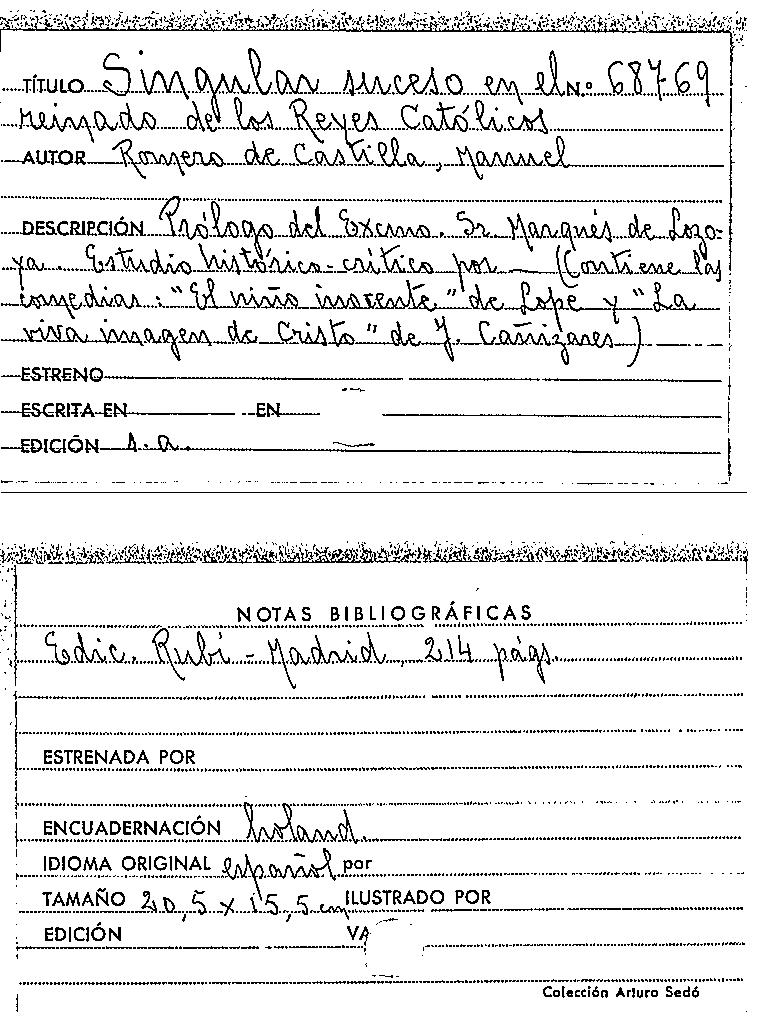 TÍTULO Singular suceso en el Nº 68769
reinado de los Reyes Católicos
AUTOR Romero de Castilla, Manuel
DESCRIPCIÓN Prólogo del Excmo. Sr Marqués de Lozo-
ya. Estudio histórico-crítico por — (Contiene las
comedias: "El niño inocente" de Lope y "La
viva imagen de Cristo" de J. Cañizares)
ESTRENO
ESCRITA EN EN
EDICIÓN s.a.
NOTAS BIBLIOGRÁFICAS
Edic. Rubí - Madrid, 214 págs.
ESTRENADA POR
ENCUADERNACIÓN holand.
IDIOMA ORIGINAL español por
TAMAÑO 20,5 x 15,5 cm ILUSTRADO POR
EDICIÓN VA
Colección Arturo Sedó